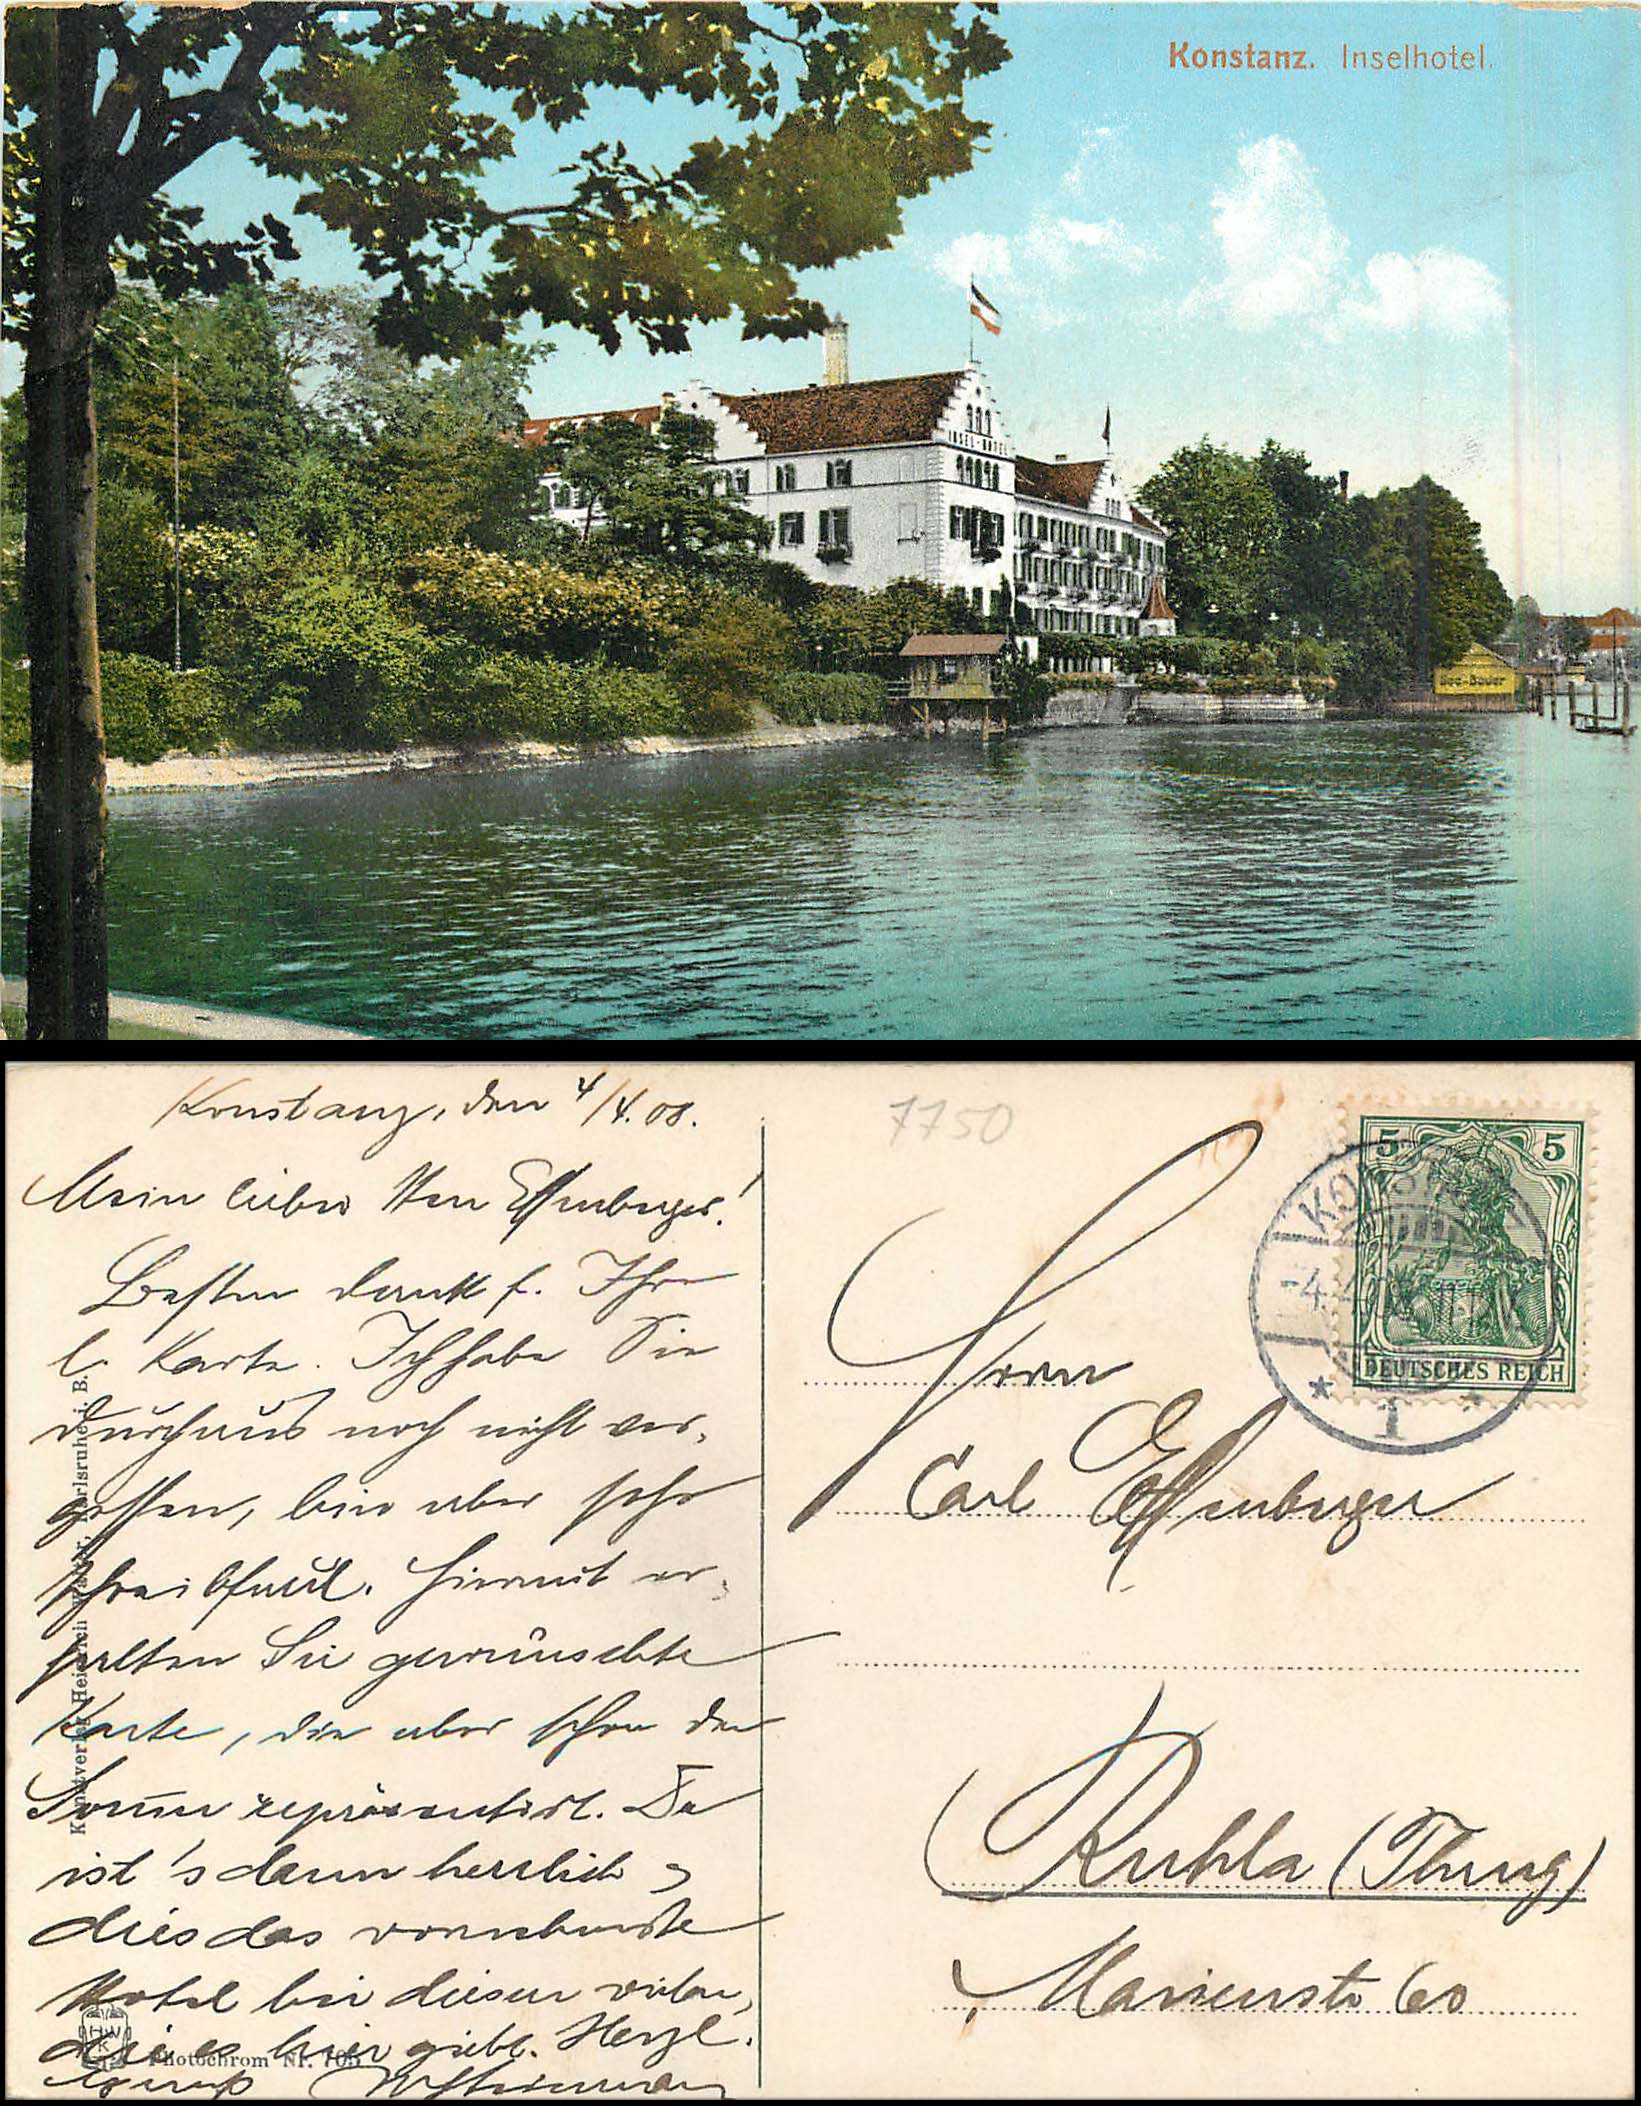 Konstanz. Inselhotel.
INSEL-HOTEL
See-Bäder
Konstanz, den 4/4.08.
Mein lieber Herr Effenberger!
Besten Dank f. Ihre
l. Karte. Ich habe Sie
durchaus noch nicht ver-
gessen, bin aber sehr
schreibfaul. Hiermit er-
halten Sie gewünschte
Karte, die aber schon den
Sommer repräsentirt. Da
ist 's dann herrlich
dies das vornehmste
Hotel bei diesen vielen,
die es hier giebt. Herzl.
Gruß
Kunstverlag Heinrich Karlsruhe i. B.
HWK
Photochrom Nr. 705
7750
5 5
DEUTSCHES REICH
KONSTANZ
-4.4.
* 1 *
Herrn
Carl Effenberger
Ruhla (Thürg)
Marienstr 60